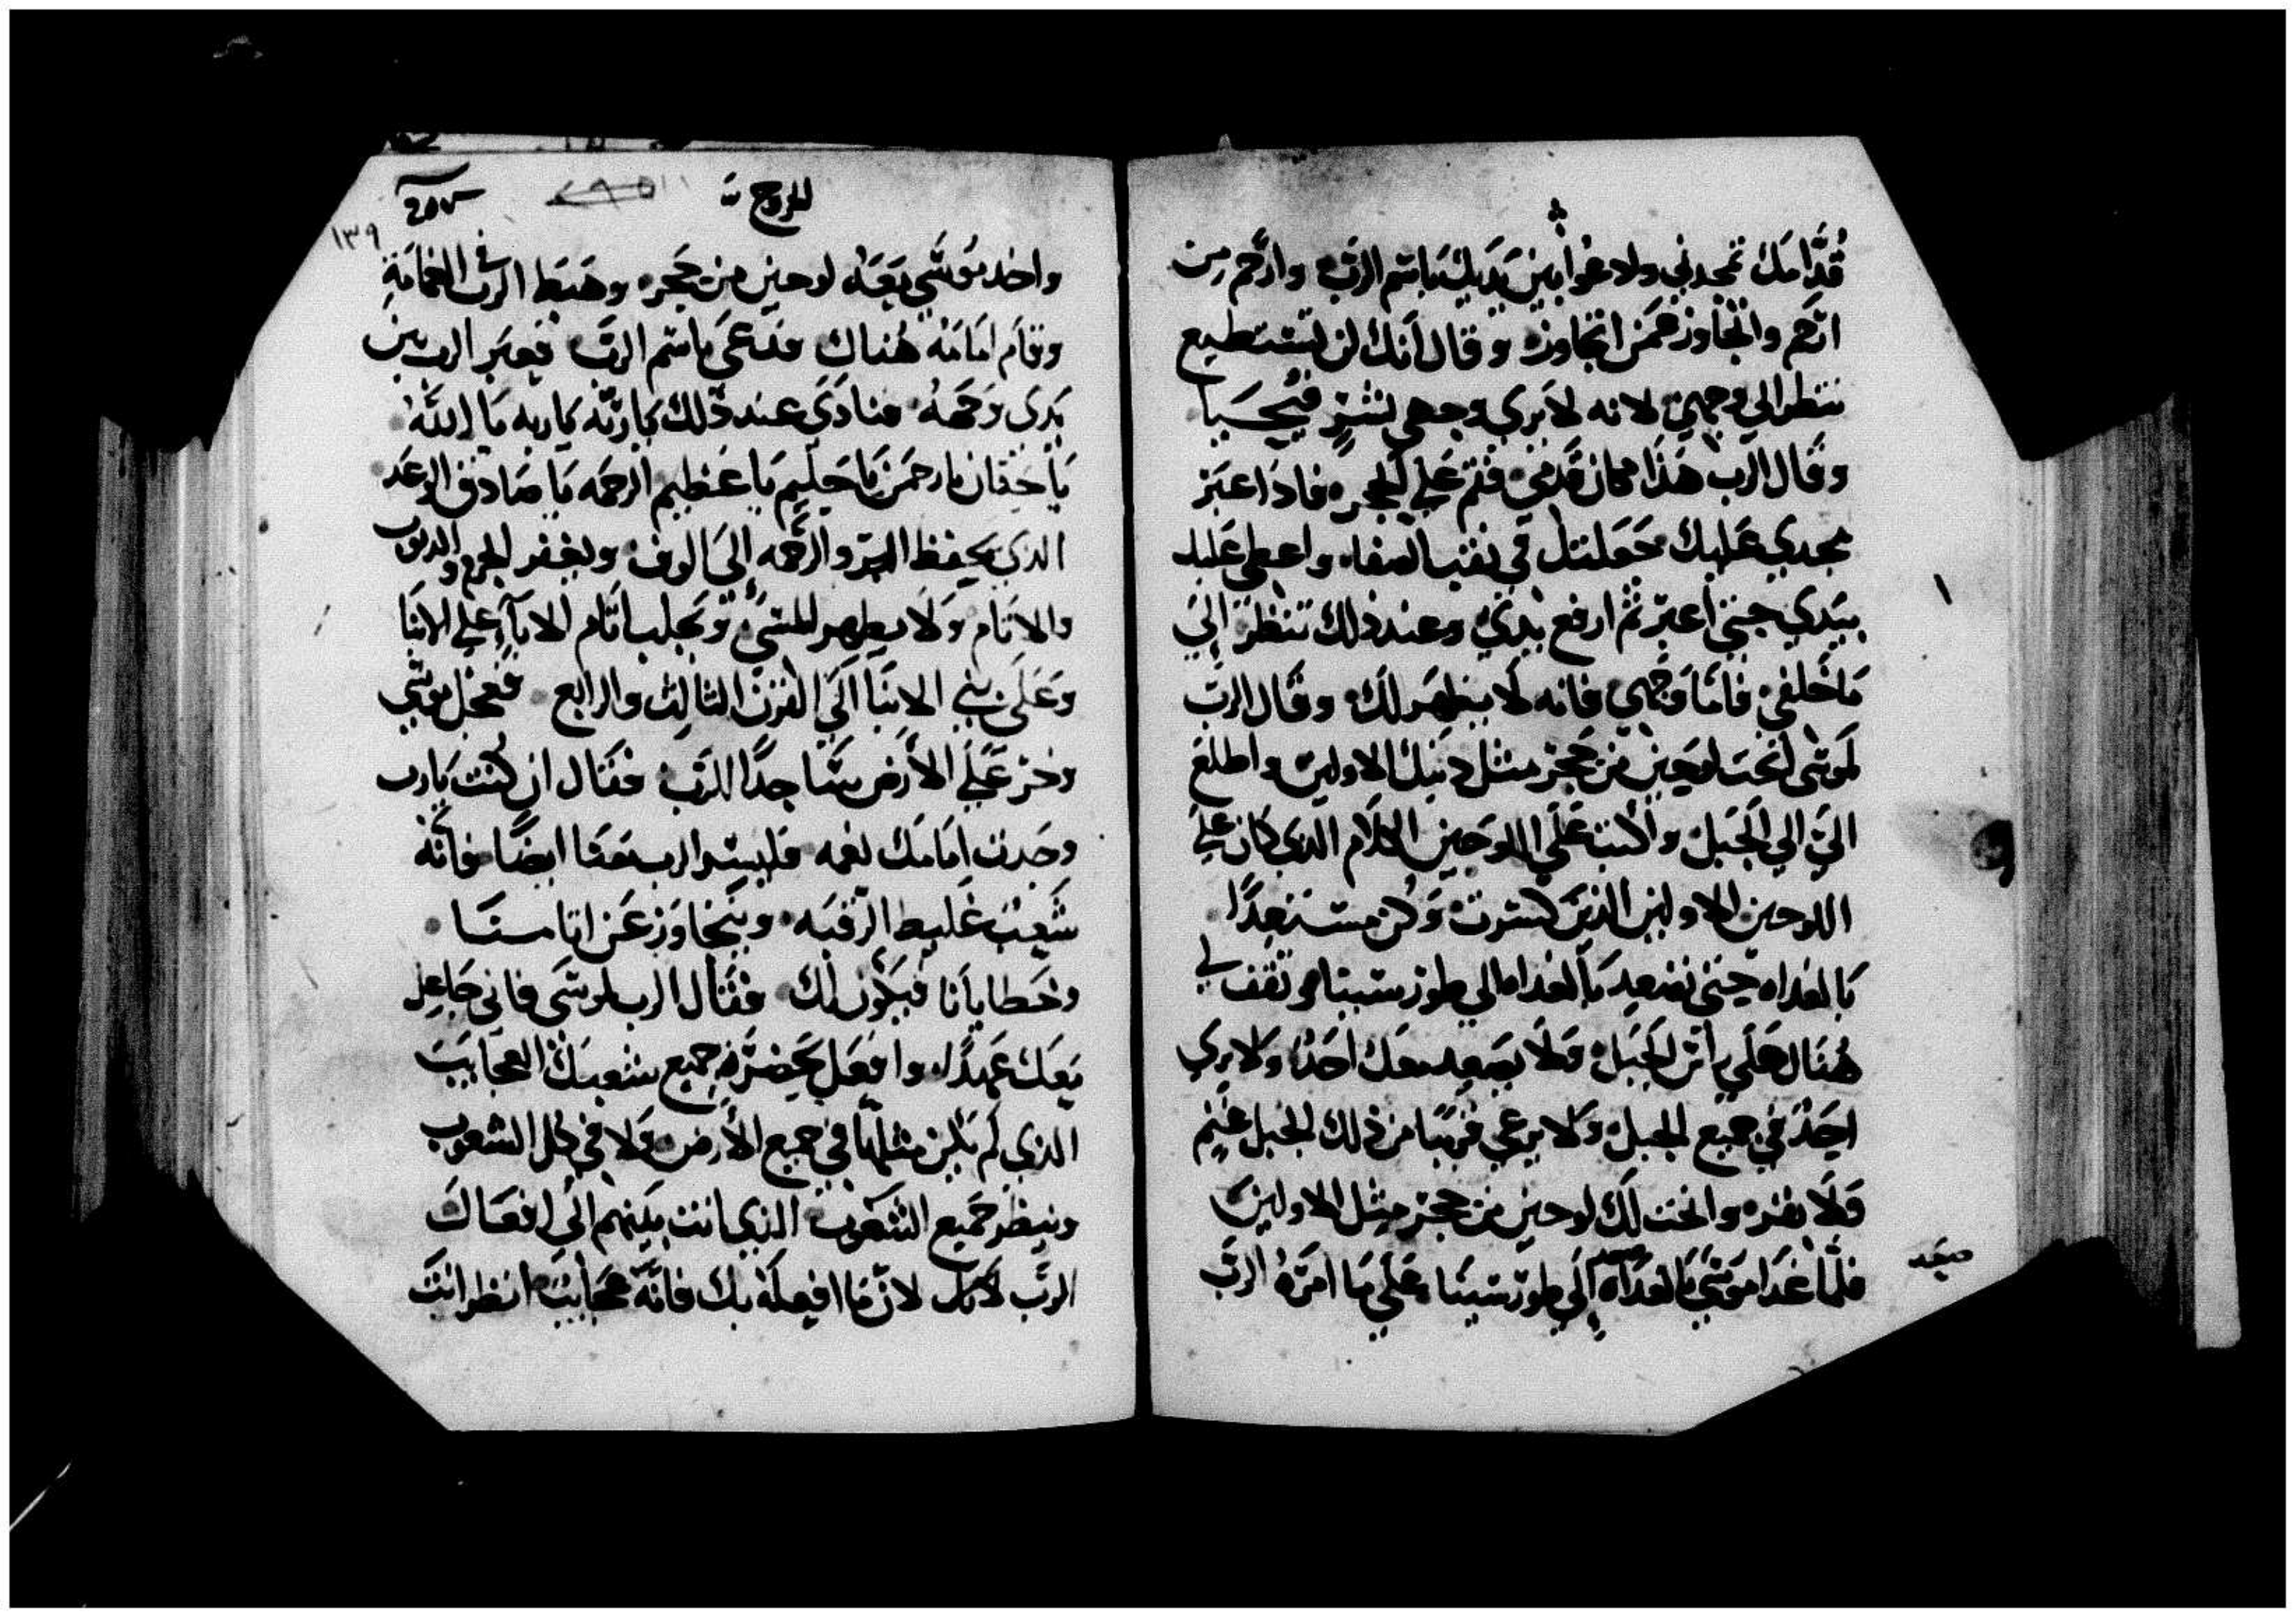 قُدَّامك تمجدني ولادعُوا بين يَدَيك بَاسم الرَب وارحم من
ارحم واتجاوز عمَن اتجاوزه وقال اَنك لن تستطيع
تنظر الي وجهي لانه لا يري وجهي بشرٍ فيُحيَا
وقال الرب هَذا مكان قدمي فقم عَلي الحجر فاذا عبَر
مجدي عَليك جَعلتك في نقب الصفاه واعطي عَليك
بيَدي حتي اعبر ثم ارفع يدي وعند ذلك تنظر اليَ
مَا خلفي فاما وَجهي فانه لا يظهر لك وقال الرب
لموسي اَنحت لوحين من حَجر مثل ذَينك الاولين واطلع
اليَ الي الجَبل واَكتب عَلي اللوحَين الكلام الذي كان علي
اللوحين الاولين الذين كسرت وَكن مستعدًا
بالغداه حتي تصعد بَالغداه الي طور سينا وتقف لي
هُناك عَلي راس الجَبل وَلا يصعد معك احَدًا ولا يري
احَدٌ في جميع الجبل وَلا يرعي قربيًا من ذلك الجبل غنم
وَلا بقره وانحت لَك لوحين من حجر مثل الاولين
فلما غدَا موسَي بَالغداه الَي طور سينا عَلي ما امرَهُ الرب
صعد
الخروج
٢٥٧
١٣٩
واخد موسَي معَهُ لوحين من حَجر وهَبط الرب في الغمامَة
وقام امَامَهُ هُناك فدعَي باسم الرَب فعبَر الرب بين
يَدي وَجهَهُ فنادَي عند ذلك يا ربّه يا ربه يَا اللهُ
يَا حَنان يا رحمَن يَا حَليم يَا عَظيم الرحمه يَا صَادق الوعَد
الدي يحفظ البر والرَحمه اِلي الوف ويغفر الجرم والدنوب
والاثام وَلا يطهر المسيُ وَيَجلب اثام الابآء علي الابنا
وعَلَي بني الابنَا اَلي القرن الثالث والرابع فعجل موسَي
وخر عَلي الاَرض سَاجدًا للرَب فقال ان كنت يَارب
وجَدت اِمَامَك نعمه فليسر الرب معَنا ايضًا فانَه
شَعبٌ غَليط الرقبَه ويتجاوَز عَن اثامنا
وخَطايانا فيَكون لك فقال الرب لموسَي فاني جَاعل
معَك عَهدًا وافعَل بحَضرَة جميع شعبك العجَايبَ
الذي لم يَكن مثلهَا في جميع الاَرض ولا في كل الشعوب
وينظر جَميع الشعَوب الذي انت بَينهم اَلي افعَال
الرَب لَكل لان ما افعله بك فانَه عجَايب انظر انتَ